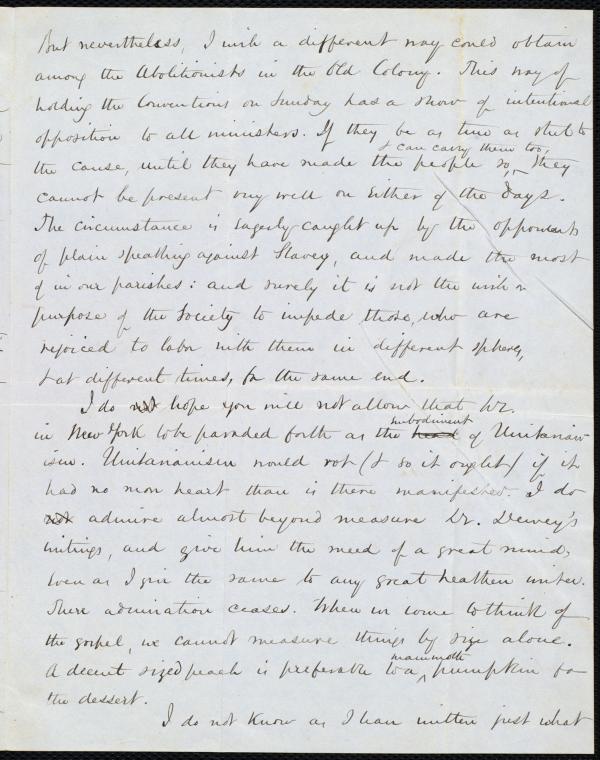 But nevertheless, I wish a different way could obtain
among the Abolitionists in the Old Colony. This way of
holding the Conventions on Sunday has a show of intentional
opposition to all ministers. If they be as true as steel to
the cause, until they have made the people so, & can carry them too, they
cannot be present very well on either of the days.
The circumstance is eagerly caught up by the opponents
of plain speaking against Slavery, and made the most
of in our parishes: and surely it is not the wish or
purpose of the Society to impede those, who are
rejoiced to labor with them in different spheres,
& at different times, for the same end.
I do not hope you will not allow that Dr.
in New York to be paraded forth as the head embodiment of Unitarian-
ism. Unitarianism would rot (& so it ought) if it
had no more heart than is there manifested. I do
not admire almost beyond measure Dr. Dewey's
writings, and give him the meed of a great mind,
even as I give the same to any great heathen writer.
There admiration ceases. When we come to think of
the gospel, we cannot measure things by size alone.
A decent sized peach is preferable to a mammoth pumpkin for
the dessert.
I do not know as I have written just what